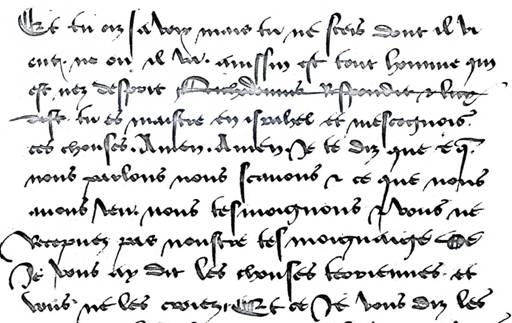 Et tu oiz sa voix mais tu ne sceis dont il vi
ent. ne ou il va. ainssin est tout homme qui
est nez desperit Nichodemus Respondit
dist. tu es maistre en israhel et mescognois
ces chouses. Amen. Amen. Je te diz que
nous parlons nous scauons & ce que nous
auons veu. nous tesmoignons & vous ne
Recepuez pas noustre tesmoignaige Se
Je vous ay dit les chouses terriennes. et
vous. ne les creez. Et ce Je vous diz les